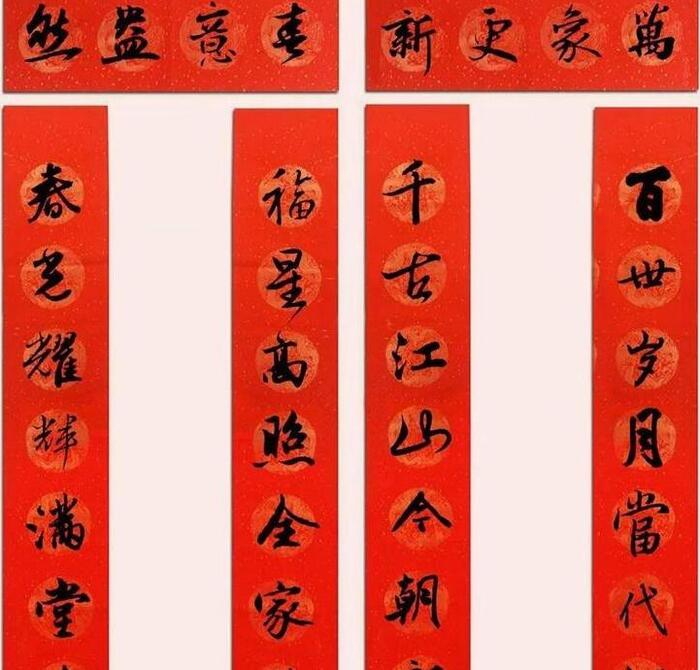 萬象更新
百世岁月當代
千古江山今朝
春意盎然
福星高照全家
春光耀輝滿堂